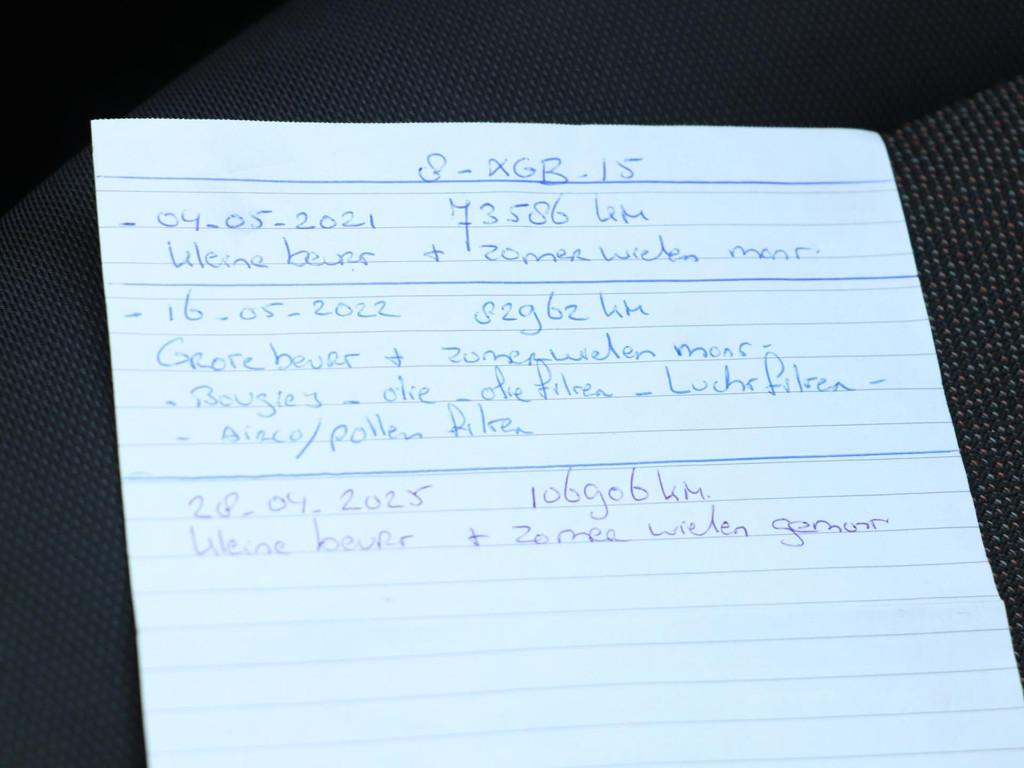 8-XGB-15
- 04-05-2021 73586 km
kleine beurt + zomerwielen mont.
- 16-05-2022 82962 km
Grote beurt + zomerwielen mont-
- Bougies - olie - oliefilter - Luchtfilter -
- Airco/pollen filter
28-04-2025 106906 km.
kleine beurt + zomer wielen gemont